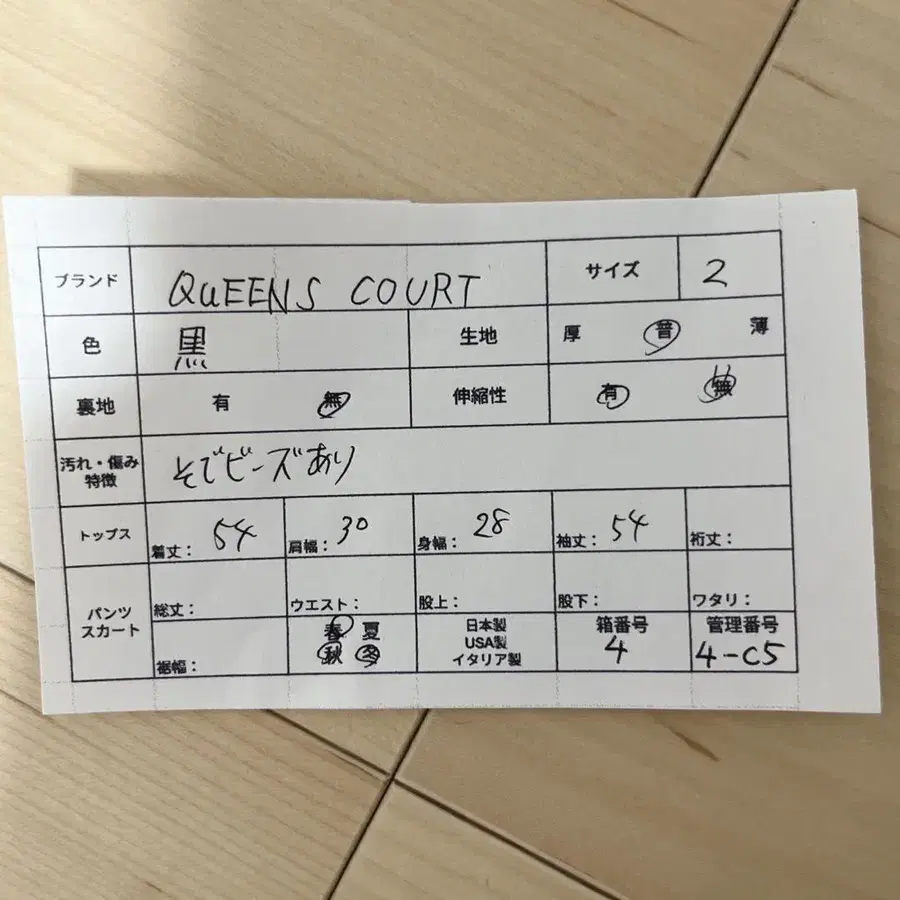 ブランド QUEENS COURT サイズ 2
色 黒 生地 厚 普 薄
裏地 有 無 伸縮性 有 無
汚れ・傷み
特徴
そでビーズあり
トップス 着丈： 54 肩幅： 30 身幅： 28 袖丈： 54 裄丈：
パンツ
スカート
総丈： ウエスト： 股上： 股下： ワタリ：
裾幅：
春 夏
秋 冬
日本製
USA製
イタリア製
箱番号
4
管理番号
4-C5